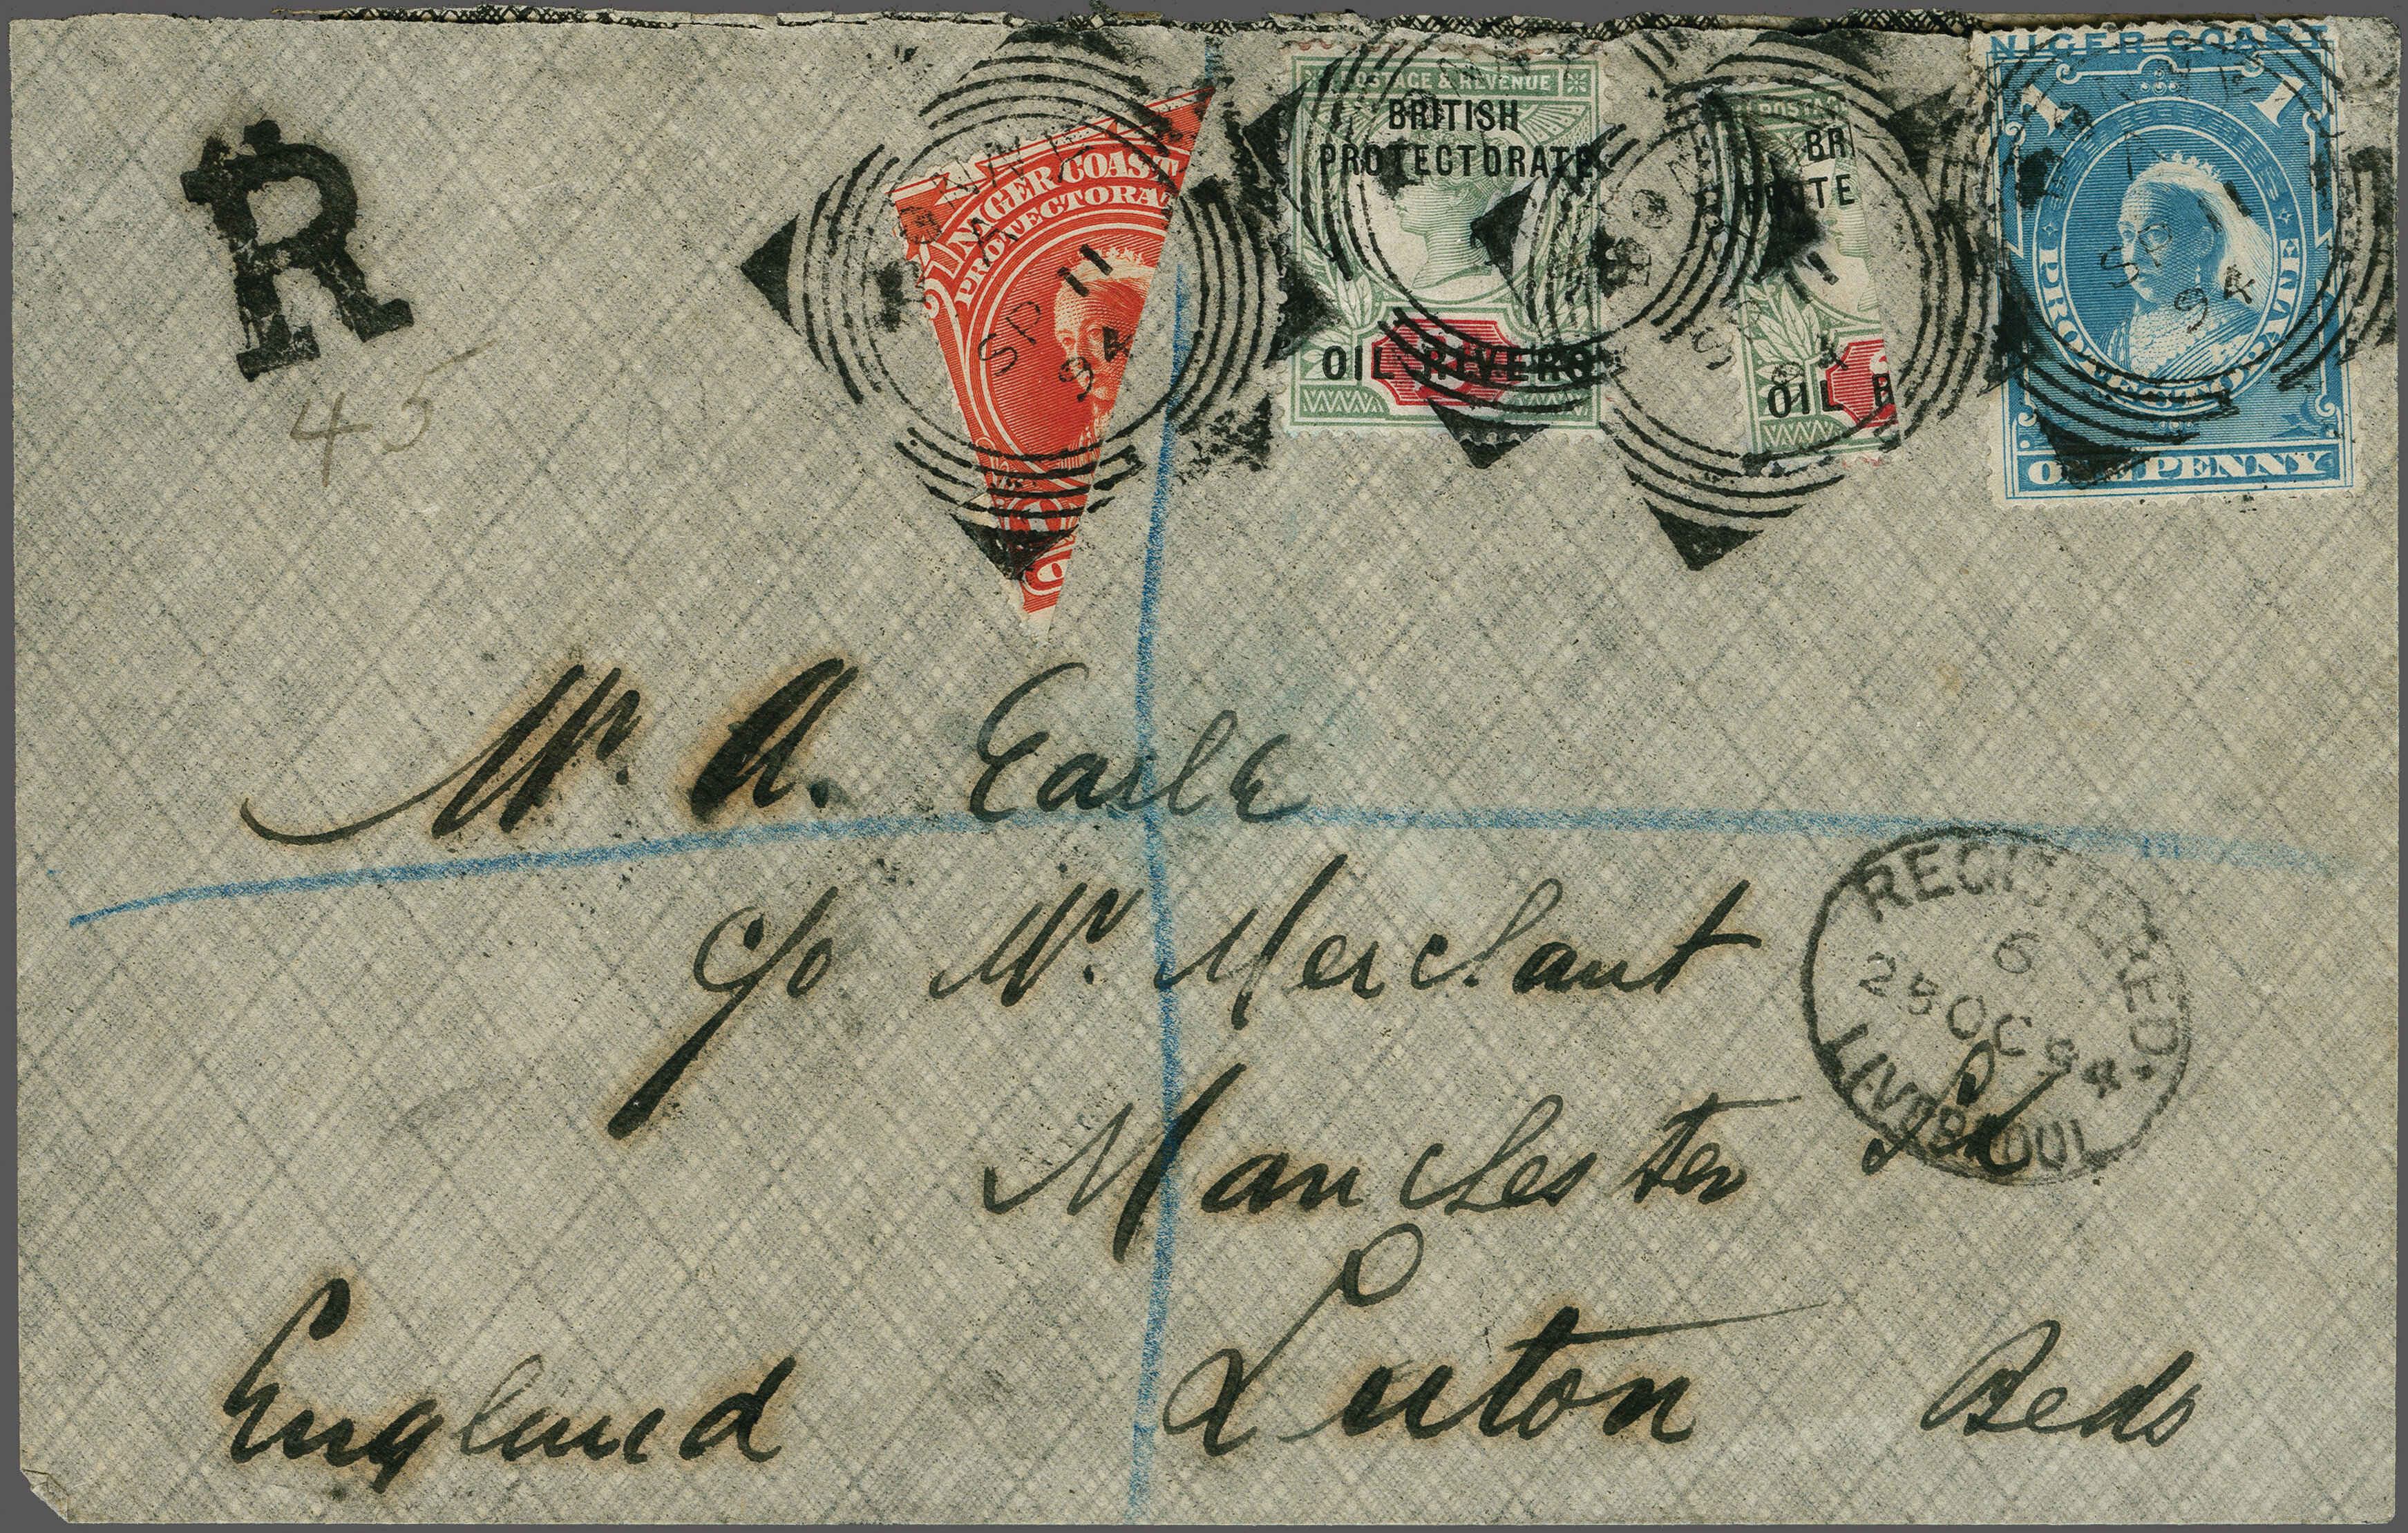 R
45
NIGER COAST
PROTECTORA
BONNY
A
SP 11
94
POSTAGE & REVENUE
BRITISH
PROTECTORATE
OIL RIVERS
POSTAG
BRI
TE
OIL R
SP 11
94
NIGER COAST
1 1
PROTECTORATE
ONE PENNY
A
SP 11
94
Mr. A. Earle
c/o Mr. Merchant
Manchester Rd
Luton Beds
England
REGISTERED.
6
OC 94
LIVERPOOL